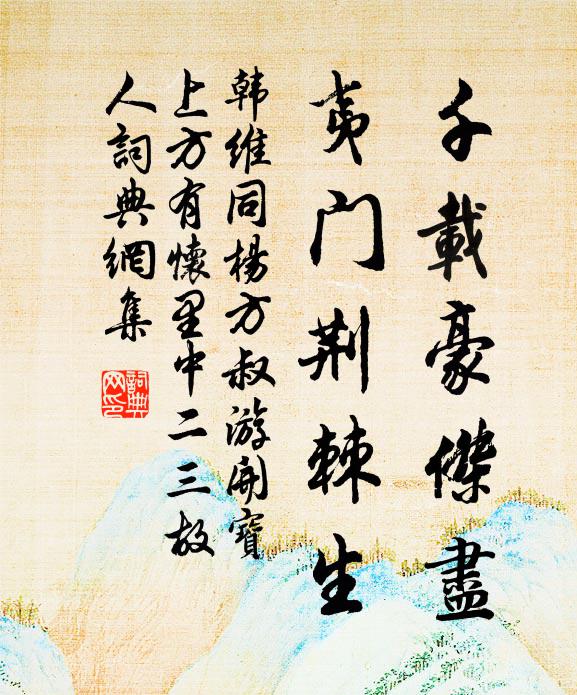 千載豪傑盡
夷门荆棘生
韩維同楊方叔游開寶
上方有懷里中二三故
人詞典網集
詞典
网印